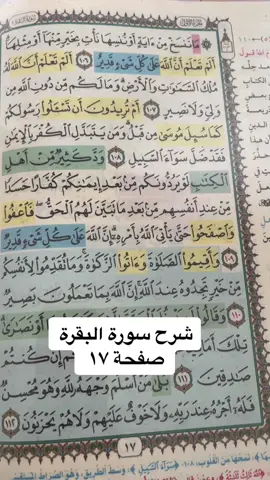 مَا نَنسَخْ مِنْ ءَايَةٍ أَوْ نُنسِهَا نَأْتِ بِخَيْرٍ مِّنْهَآ أَوْ مِثْلِهَآ
أَلَمْ تَعْلَمْ أَنَّ ٱللَّهَ عَلَىٰ كُلِّ شَىْءٍ قَدِيرٌ ١٠٦ أَلَمْ تَعْلَمْ أَنَّ ٱللَّهَ لَهُۥ
مُلْكُ ٱلسَّمَٰوَٰتِ وَٱلْأَرْضِ وَمَا لَكُم مِّن دُونِ ٱللَّهِ مِن
وَلِىٍّ وَلَا نَصِيرٍ ١٠٧ أَمْ تُرِيدُونَ أَن تَسْـَٔلُوا۟ رَسُولَكُمْ
كَمَا سُئِلَ مُوسَىٰ مِن قَبْلُ وَمَن يَتَبَدَّلِ ٱلْكُفْرَ بِٱلْإِيمَٰنِ
فَقَدْ ضَلَّ سَوَآءَ ٱلسَّبِيلِ ١٠٨ وَدَّ كَثِيرٌ مِّنْ أَهْلِ
ٱلْكِتَٰبِ لَوْ يَرُدُّونَكُم مِّنۢ بَعْدِ إِيمَٰنِكُمْ كُفَّارًا حَسَدًا
مِّنْ عِندِ أَنفُسِهِم مِّنۢ بَعْدِ مَا تَبَيَّنَ لَهُمُ ٱلْحَقُّ فَٱعْفُوا۟
وَٱصْفَحُوا۟ حَتَّىٰ يَأْتِىَ ٱللَّهُ بِأَمْرِهِۦٓ إِنَّ ٱللَّهَ عَلَىٰ كُلِّ شَىْءٍ قَدِيرٌ
١٠٩ وَأَقِيمُوا۟ ٱلصَّلَوٰةَ وَءَاتُوا۟ ٱلزَّكَوٰةَ وَمَا تُقَدِّمُوا۟ لِأَنفُسِكُم
مِّنْ خَيْرٍ تَجِدُوهُ عِندَ ٱللَّهِ إِنَّ ٱللَّهَ بِمَا تَعْمَلُونَ بَصِيرٌ
١١٠ وَقَالُوا۟ أَوْ نَصَٰرَىٰ
تِلْكَ إِن كُنتُمْ
شرح سورة البقرة
صفحة ١٧
صَٰدِقِينَ ١١١ بَلَىٰ مَنْ أَسْلَمَ وَجْهَهُۥ لِلَّهِ وَهُوَ مُحْسِنٌ
فَلَهُۥٓ أَجْرُهُۥ عِندَ رَبِّهِۦ وَلَا خَوْفٌ عَلَيْهِمْ وَلَا هُمْ يَحْزَنُونَ ١١٢
١٧